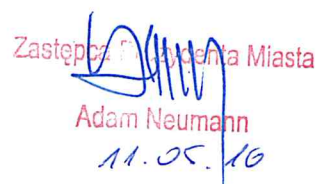 Zastępca Prezydenta Miasta
Adam Neumann
11.05.16